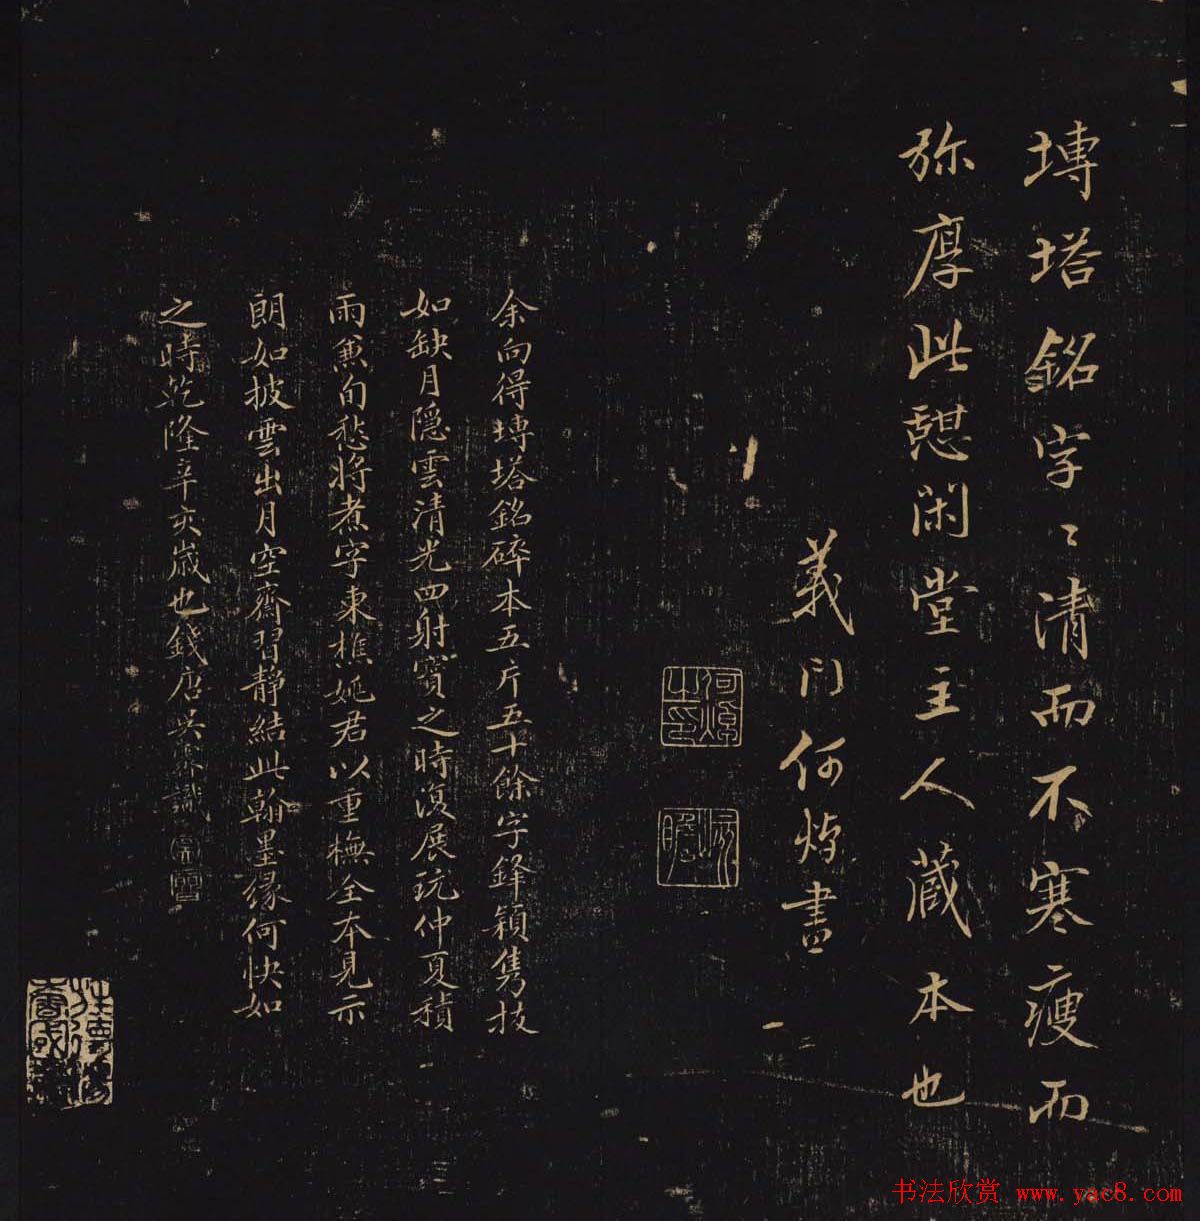 塼塔銘字〻清而不寒瘦而
弥厚此憇闲堂主人蔵本也
義门何焯書
余向得塼塔銘碎本五片五十餘字鋒穎隽拔
如缺月隱雲清光四射寶之時復展玩仲夏積
雨兼旬愁將煮字東樵姚君以重橅全本見示
朗如披雲出月空齋習靜結此翰墨緣何快如
之時乾隆辛亥嵗也錢唐吳 識
何焯之印
屺瞻
书法欣赏 www.yac8.com